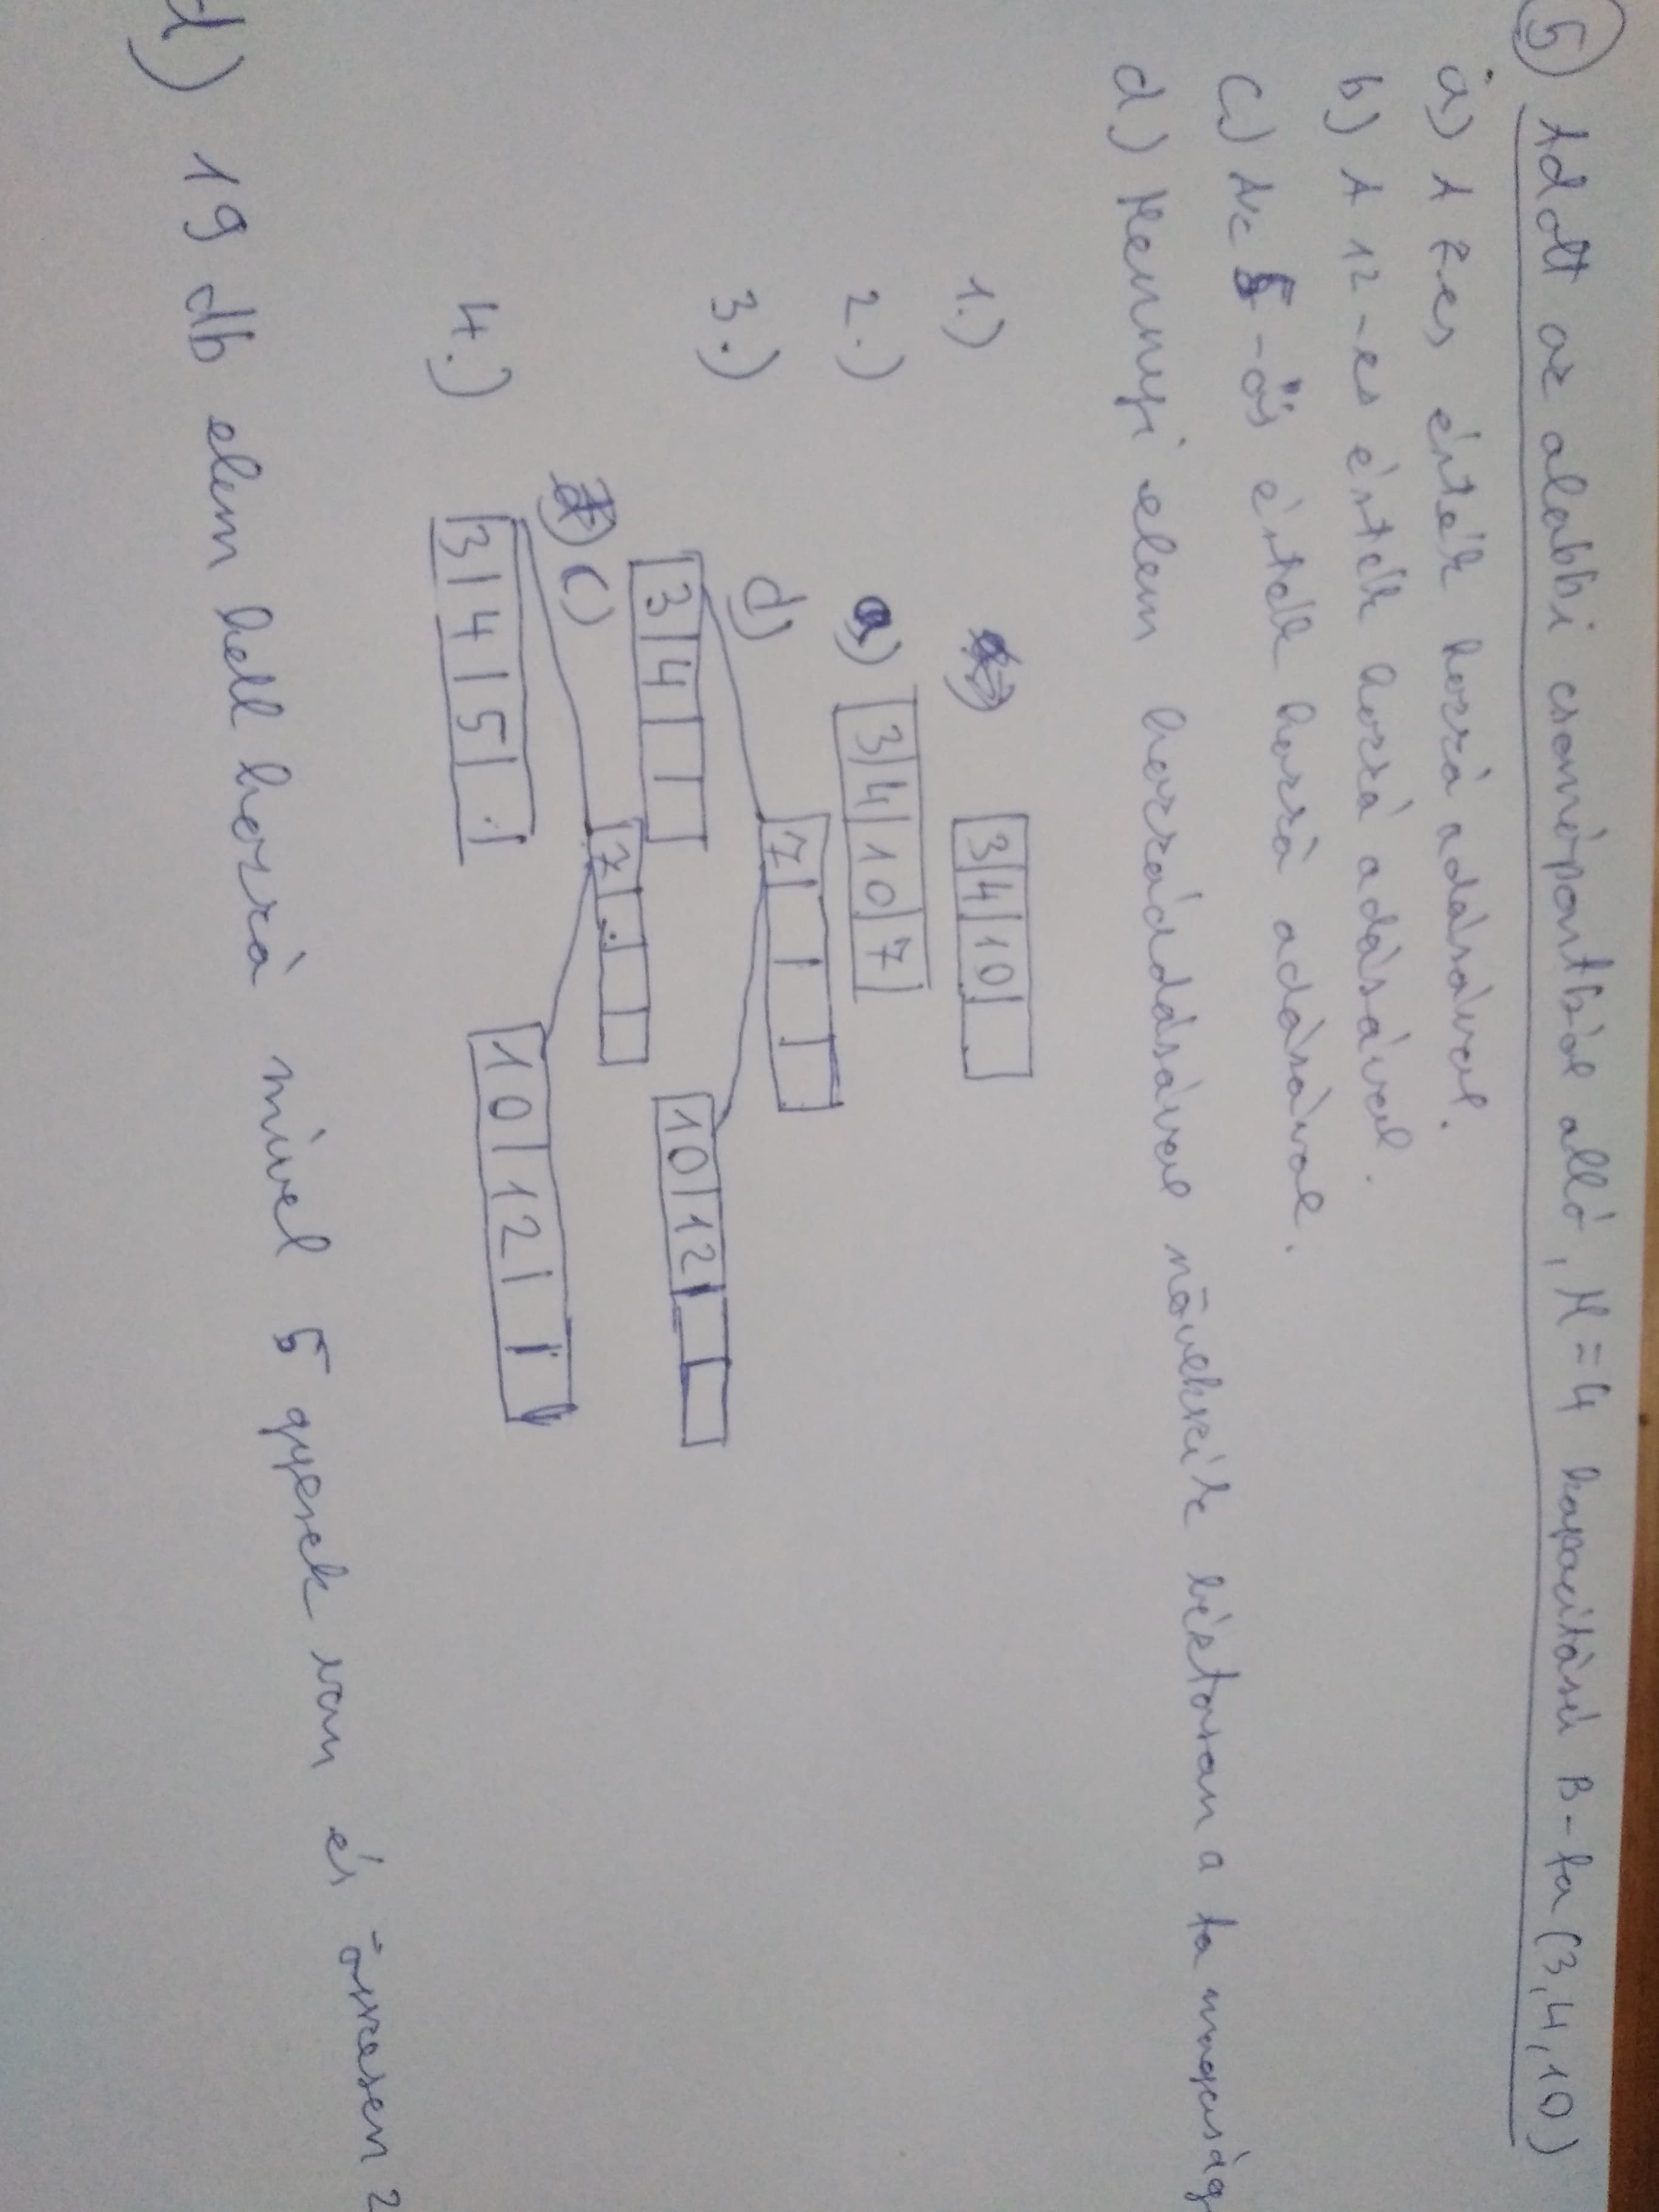 5) Adott az alabbi csomópontból álló, M=4 kapacitású B-fa (3,4,10)
a) A 7-es érték hozzá adásával.
b) A 12-es érték hozzá adásával.
c) Az 5-ös érték hozzá adásával.
d) Mennyi elem hozzáadásával növekszik biztosan a fa magaság
1.) 3 4 10
2.) a) 3 4 10 7
3.) d) 7
3 4 10 12
4.) c) 7
3 4 5 10 12
d) 19 db elem kell hozzá mivel 5 gyerek van és összesen 2